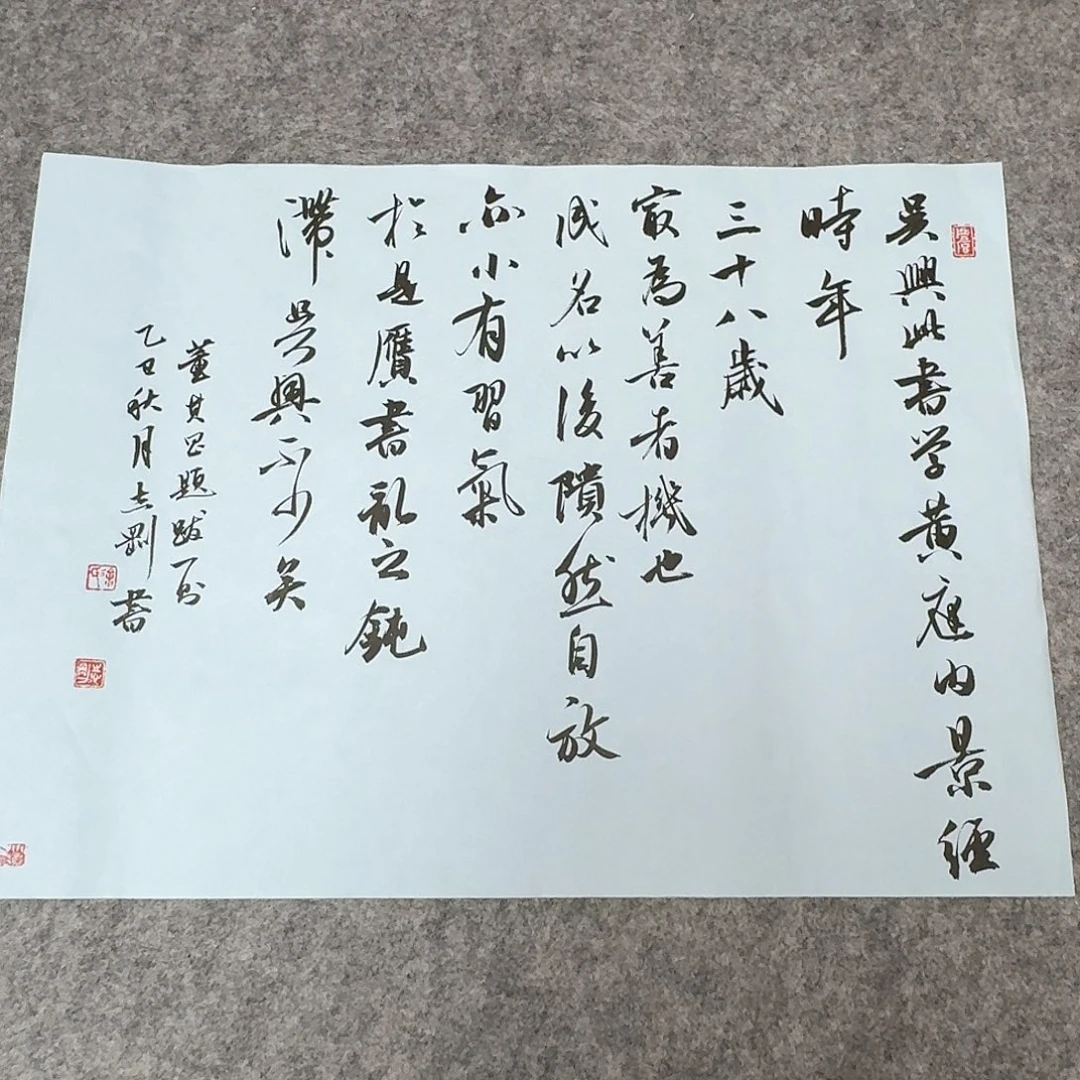 吴興此書学黄庭内景經
時年
三十八歲
最為善者機也
成名以後隤然自放
亦小有習氣
於是贋書亂之鈍
滯吴興不少矣
董其昌題跋一則
乙巳秋月志剛書